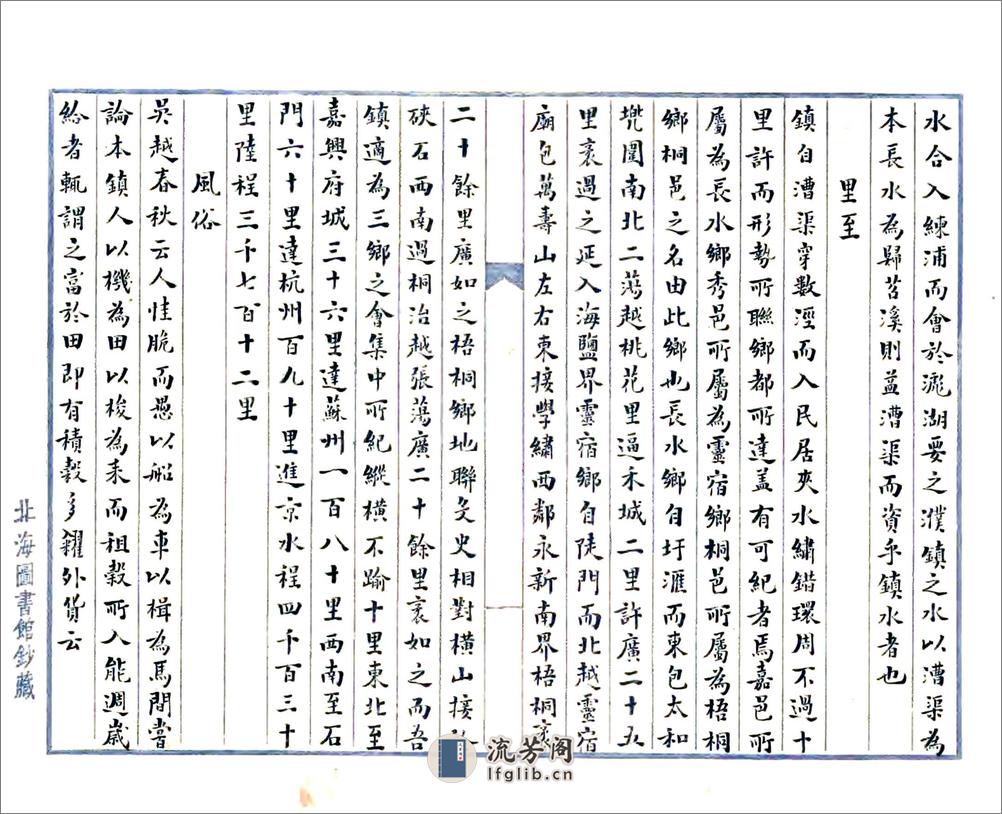 水合入練浦而會於滮湖要之濮鎮之水以漕渠為
本長水為歸苕溪則益漕渠而資乎鎮水者也
里至
鎮自漕渠穿數涇而入民居夾水繡錯環周不過十
里許而形勢所聯鄉都所達盖有可紀者焉嘉邑所
屬為長水鄉秀邑所屬為靈宿鄉桐邑所屬為梧桐
鄉桐邑之名由此鄉也長水鄉自圩滙而東包太和
兠圍南北二蕩越桃花里逼禾城二里許廣二十五
里袤過之延入海鹽界靈宿鄉自陡門而北越靈宿
廟包萬壽山左右東接學繡西鄰永新南界梧桐袤
二十餘里廣如之梧桐鄉地聯爻史相對橫山接於
硤石西南過桐治越張蕩廣二十餘里袤如之而吾
鎮適為三鄉之會集中所紀縱橫不踰十里東北至
嘉興府城三十六里達蘇州一百八十里西南至石
門六十里達杭州百九十里進京水程四千百三十
里陸程三千七百十二里
風俗
吳越春秋云人性脆而愚以船為車以楫為馬間嘗
論本鎮人以機為田以梭為耒而租穀所入能週歲
給者輒謂之富於田即有積穀多糴外貨云
北海圖書館鈔藏
流芳阁
lfglib.cn